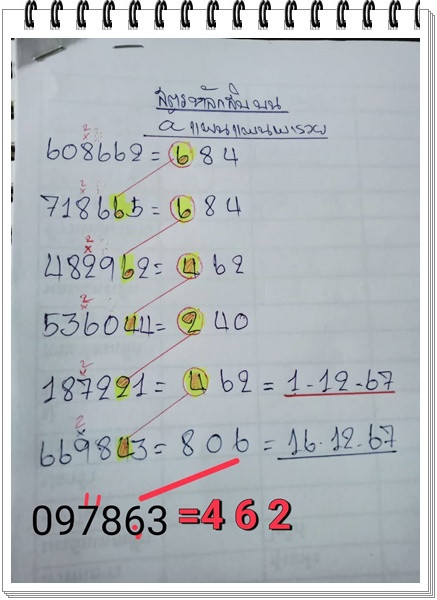 สูตรหลักสิบบน
a แพนแพนพารวย
2
608662 = 684
2
718665 = 684
2
482962 = 462
2
536044 = 240
2
187221 = 462 = 1-12-67
2
669843 = 806 = 16.12.67
097863 =462